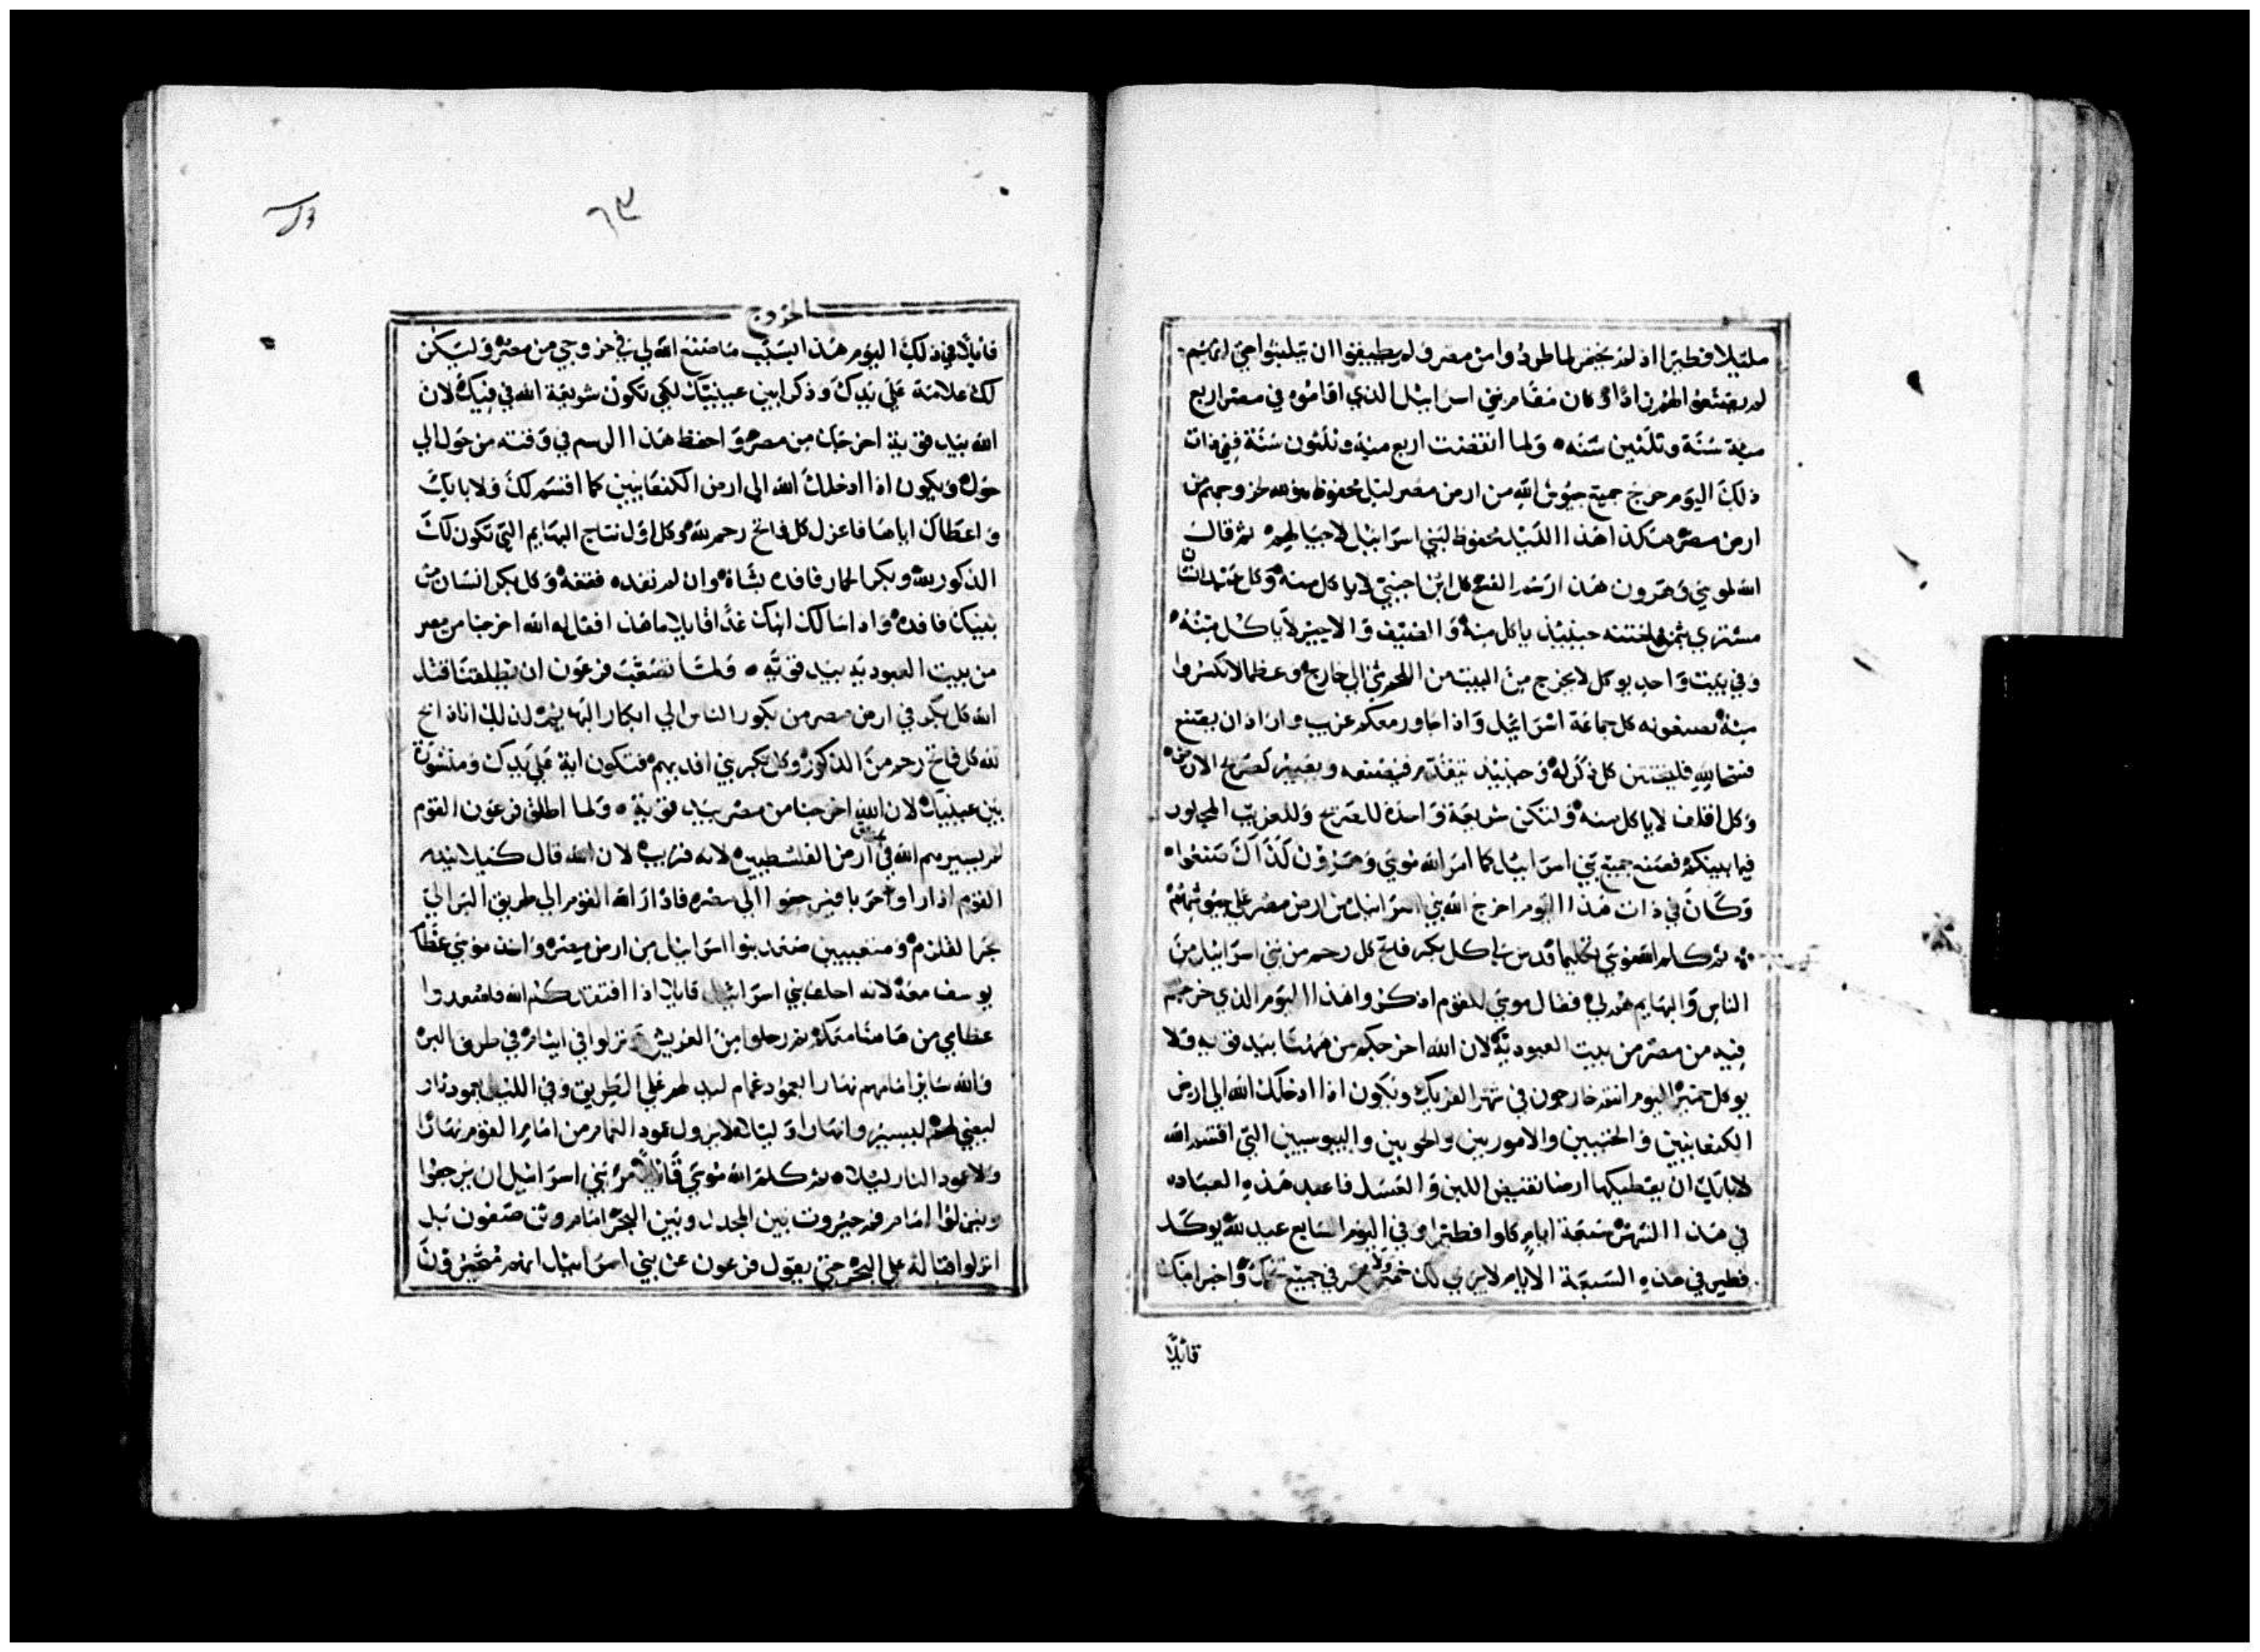 مليلا فطيرا اذ لم يختمر لما طردوا من مصر ولم يطيقوا ان يتلبثوا حتى انهم
لم يصنعوا لهم زادا وكان مقام بني اسرائيل الذي اقاموه في مصر اربع
مية سنة وثلثين سنه ولما انقضت اربع مية وثلثون سنة ففي ذات
ذلك اليوم خرج جميع جيوش الله من ارض مصر ليل محفوظ هو لله لخروجهم من
ارض مصر هكذا هذا الليل محفوظ لبني اسرائيل لاجيالهم ثم قال
الله لموسي وهرون هذا رسم الفصح كل ابن اجنبي لا ياكل منه وكل عبد انسان
مشتري بثمن فلتختنه حينيذ ياكل منه والضيف والاجير لا ياكل منه
وفي بيت واحد يوكل لا يخرج من البيت من اللحم شي الي خارج وعظما لا تكسروا
منه يصنعونه كل جماعة اسرائيل واذا جاور معكم غريب واراد ان يصنع
فصحا لله فليختتن كل ذكر له وحينيذ يتقدم فيصنعه ويصير كصريح الارض
وكل اقلف لا ياكل منه ولتكن شريعة واحدة للصريح وللغريب المجاور
فيما بينكم فصنع جميع بني اسرائيل كما امر الله موسي وهرون كذلك صنعوا
وكان في ذات هذا اليوم اخرج الله بني اسرائيل من ارض مصر علي جيوشهم
ثم كلم الله موسي تكليما قدس لي كل بكر فاتح كل رحم من بني اسرائيل من
الناس والبهايم هو لي فقال موسي للقوم اذكروا هذا اليوم الذي خرجتم
فيه من مصر من بيت العبودية لان الله اخرجكم من ههنا بيد قويه ولا
يوكل خمير اليوم انتم خارجون في شهر الفريك ويكون اذا ادخلك الله الي ارض
الكنعانيين والحثيين والاموريين والحويين واليبوسيين التي اقسم الله
لابايك ان يعطيكها ارضا تفيض اللبن والعسل فاعبد هذه العباده
في هذا الشهر سبعة ايام كلوا فطيرا وفي اليوم السابع عيد لله يوكل
فطير في هذه السبعة الايام لا يري لك خمير ولا مختمر في جميع تخمك واخبر ابنك
قائلا
٦٣
الخروج
قايلا في ذلك اليوم هذا السبب ما صنع الله لي في خروجي من مصر وليكن
لك علامة علي يدك وذكرا بين عينيك لكي تكون شريعة الله في فيك لان
الله بيد قوية اخرجك من مصر واحفظ هذا الرسم في وقته من حول الي
حول ويكون اذا ادخلك الله الي ارض الكنعانيين كما اقسم لك ولابايك
واعطاك اياها فاعزل كل فاتح رحم لله وكل اول نتاج البهايم التي تكون لك
الذكور لله وبكر الحمار فافده بشاة وان لم تفده فقفه وكل بكر انسان من
بنيك فافده واذا سالك ابنك غدا قايلا ما هذا فقال له الله اخرجنا من مصر
من بيت العبودية بيد قوية ولما تصعب فرعون ان يطلقنا قتل
الله كل بكر في ارض مصر من بكور الناس الي ابكار البهايم لذلك انا ذابح
لله كل فاتح رحم من الذكور وكل بكر بني افديهم فتكون اية علي يدك ومنشورة
بين عينيك لان الله اخرجنا من مصر بيد قوية ولما اطلق فرعون القوم
لم يسيرهم الله في طريق ارض الفلسطيين لانه قريب لان الله قال كيلا يندم
القوم اذا راوا حربا فيرجعوا الي مصر فادار الله القوم الي طريق البر الي
بحر القلزم ومتعبيين صعد بنوا اسرائيل من ارض مصر واخذ موسي عظام
يوسف معه لانه احلف بني اسرائيل قايلا اذا افتقدكم الله فاصعدوا
عظامي من هاهنا معكم ثم رحلوا من العريش ونزلوا في ايثام في طرف البر
والله سائر امامهم نهارا بعمود غمام ليدلهم علي الطريق وفي الليل بعمود نار
ليضي لهم ليسيروا نهارا وليلا لا يزول عمود الغمام من امام القوم نهارا
ولا عمود النار ليلا ثم كلم الله موسي قائلا مر بني اسرائيل ان يرجعوا
وينزلوا امام فم حيروت بين المجدل وبين البحر امام وثن صفون قبل
انزلوا قبالة علي البحر حتي يقول فرعون عن بني اسرائيل انهم متحيرون